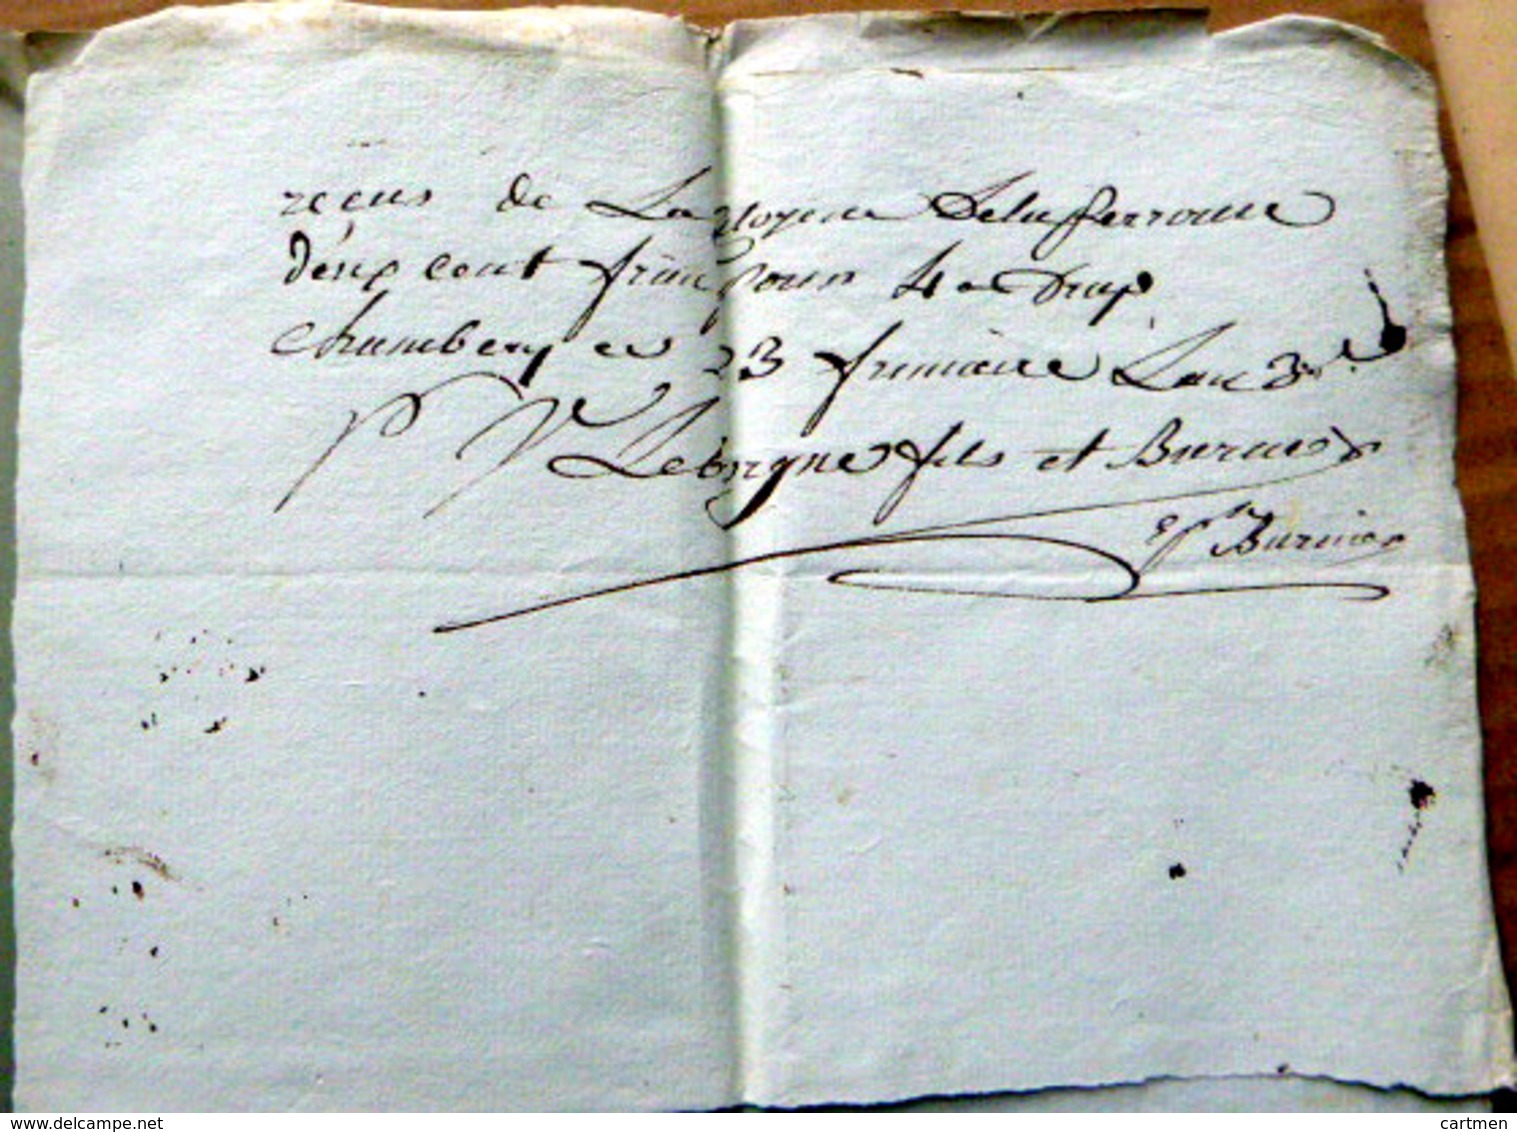 reçus de La Citoyene Delaperrouse
deux cent frans pour 4 a Drap
Chambery ce 23 frimaire Lan 3e
P Ve Leborgne fils et Burnier
Burnier
delcampe.net
cartmen